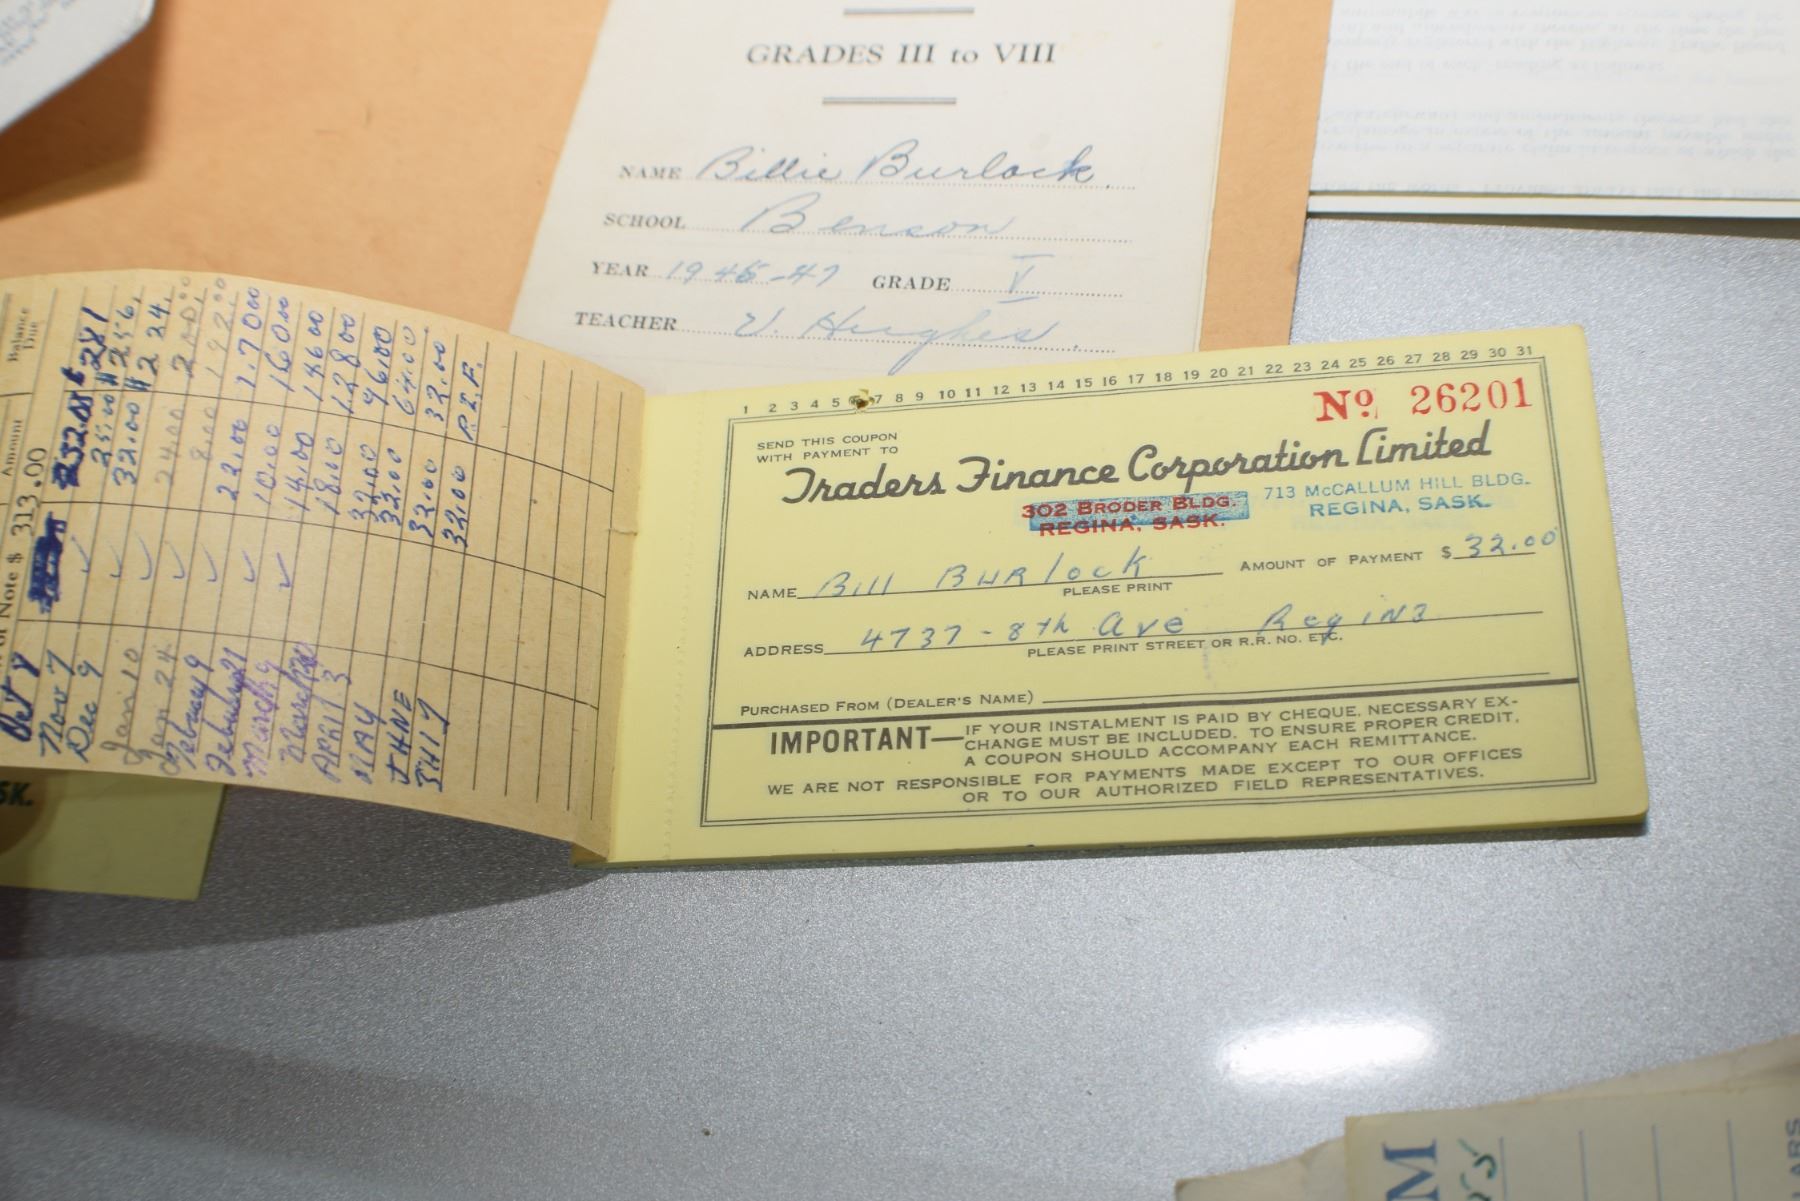 GRADES III to VIII
NAME Billie Burlock
SCHOOL Benson
YEAR 1946-47 GRADE V
TEACHER V. Hughes
Note $ 313.00
Amount
Balance Due
Oct 8
Nov 7 32.00 281
Dec 9 25.00 256
Jan 10 32.00 224
Jan 24 24.00 200.00
February 9 8.00 192.00
February 21 22.00 170.00
March 9 10.00 160.00
March 20 14.00 146.00
April 3 18.00 128.00
MAY 32.00 96.00
JUNE 32.00 64.00
JULY 32.00 32.00
32.00 P.I.F.
1 2 3 4 5 6 7 8 9 10 11 12 13 14 15 16 17 18 19 20 21 22 23 24 25 26 27 28 29 30 31
No. 26201
SEND THIS COUPON
WITH PAYMENT TO
Traders Finance Corporation Limited
302 BRODER BLDG.
REGINA, SASK.
713 McCALLUM HILL BLDG.
REGINA, SASK.
NAME Bill Burlock AMOUNT OF PAYMENT $ 32.00
PLEASE PRINT
ADDRESS 4737 - 8th Ave Regina
PLEASE PRINT STREET OR R.R. NO. ETC.
PURCHASED FROM (DEALER'S NAME)
IMPORTANT—IF YOUR INSTALMENT IS PAID BY CHEQUE, NECESSARY EX-
CHANGE MUST BE INCLUDED. TO ENSURE PROPER CREDIT,
A COUPON SHOULD ACCOMPANY EACH REMITTANCE.
WE ARE NOT RESPONSIBLE FOR PAYMENTS MADE EXCEPT TO OUR OFFICES
OR TO OUR AUTHORIZED FIELD REPRESENTATIVES.
SK.
M